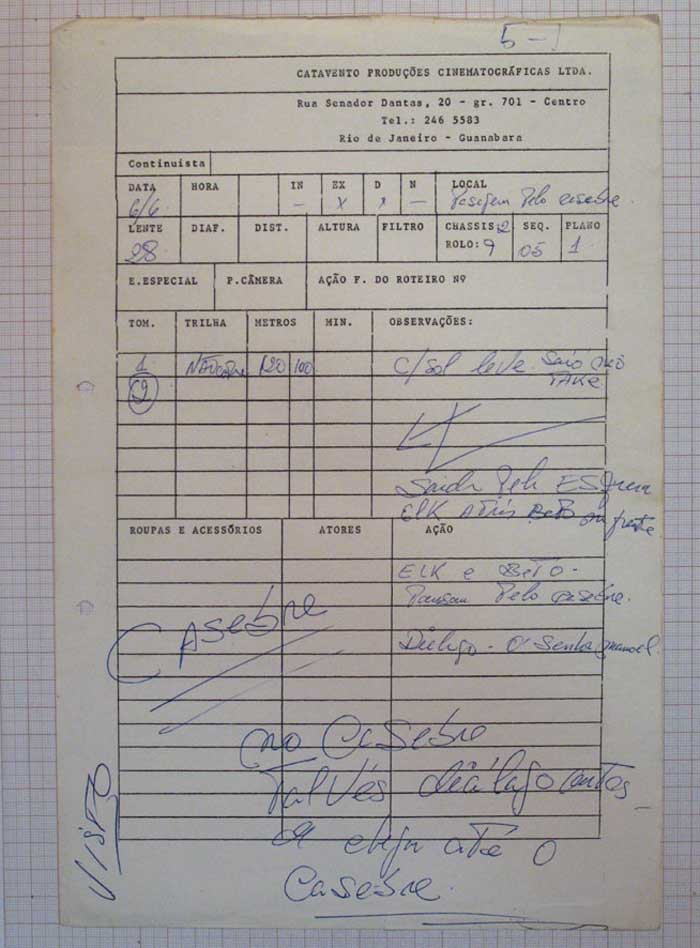 5-1
CATAVENTO PRODUÇÕES CINEMATOGRÁFICAS LTDA.
Rua Senador Dantas, 20 - gr. 701 - Centro
Tel.: 246 5583
Rio de Janeiro - Guanabara
Continuista
DATA HORA IN EX D N LOCAL
6/6 — X x — pelo casebre.
LENTE DIAF. DIST. ALTURA FILTRO CHASSIS: 2 SEQ. PLANO
28 ROLO: 9 05 1
E.ESPECIAL P.CÂMERA AÇÃO F. DO ROTEIRO Nº
TOM. TRILHA METROS MIN. OBSERVAÇÕES:
1 120 100 C/sol leve.
2 TAKE
Saida Pela Esquerda
ELK Atrás Beto na frente
ROUPAS E ACESSÓRIOS ATORES AÇÃO
ELK e BETO -
Passam Pelo casebre.
CASEBRE
Diálogo - O Senhor manoel.
no Casebre
Talvés diálago antes
até o
Casebre.
VISTO